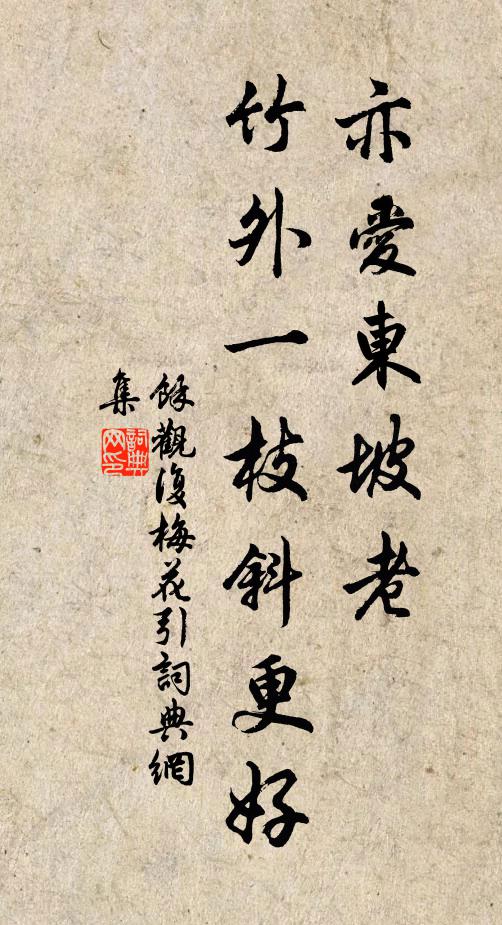 亦愛東坡老
竹外一枝斜更好
餘觀復梅花引詞典網
集
詞典
网印